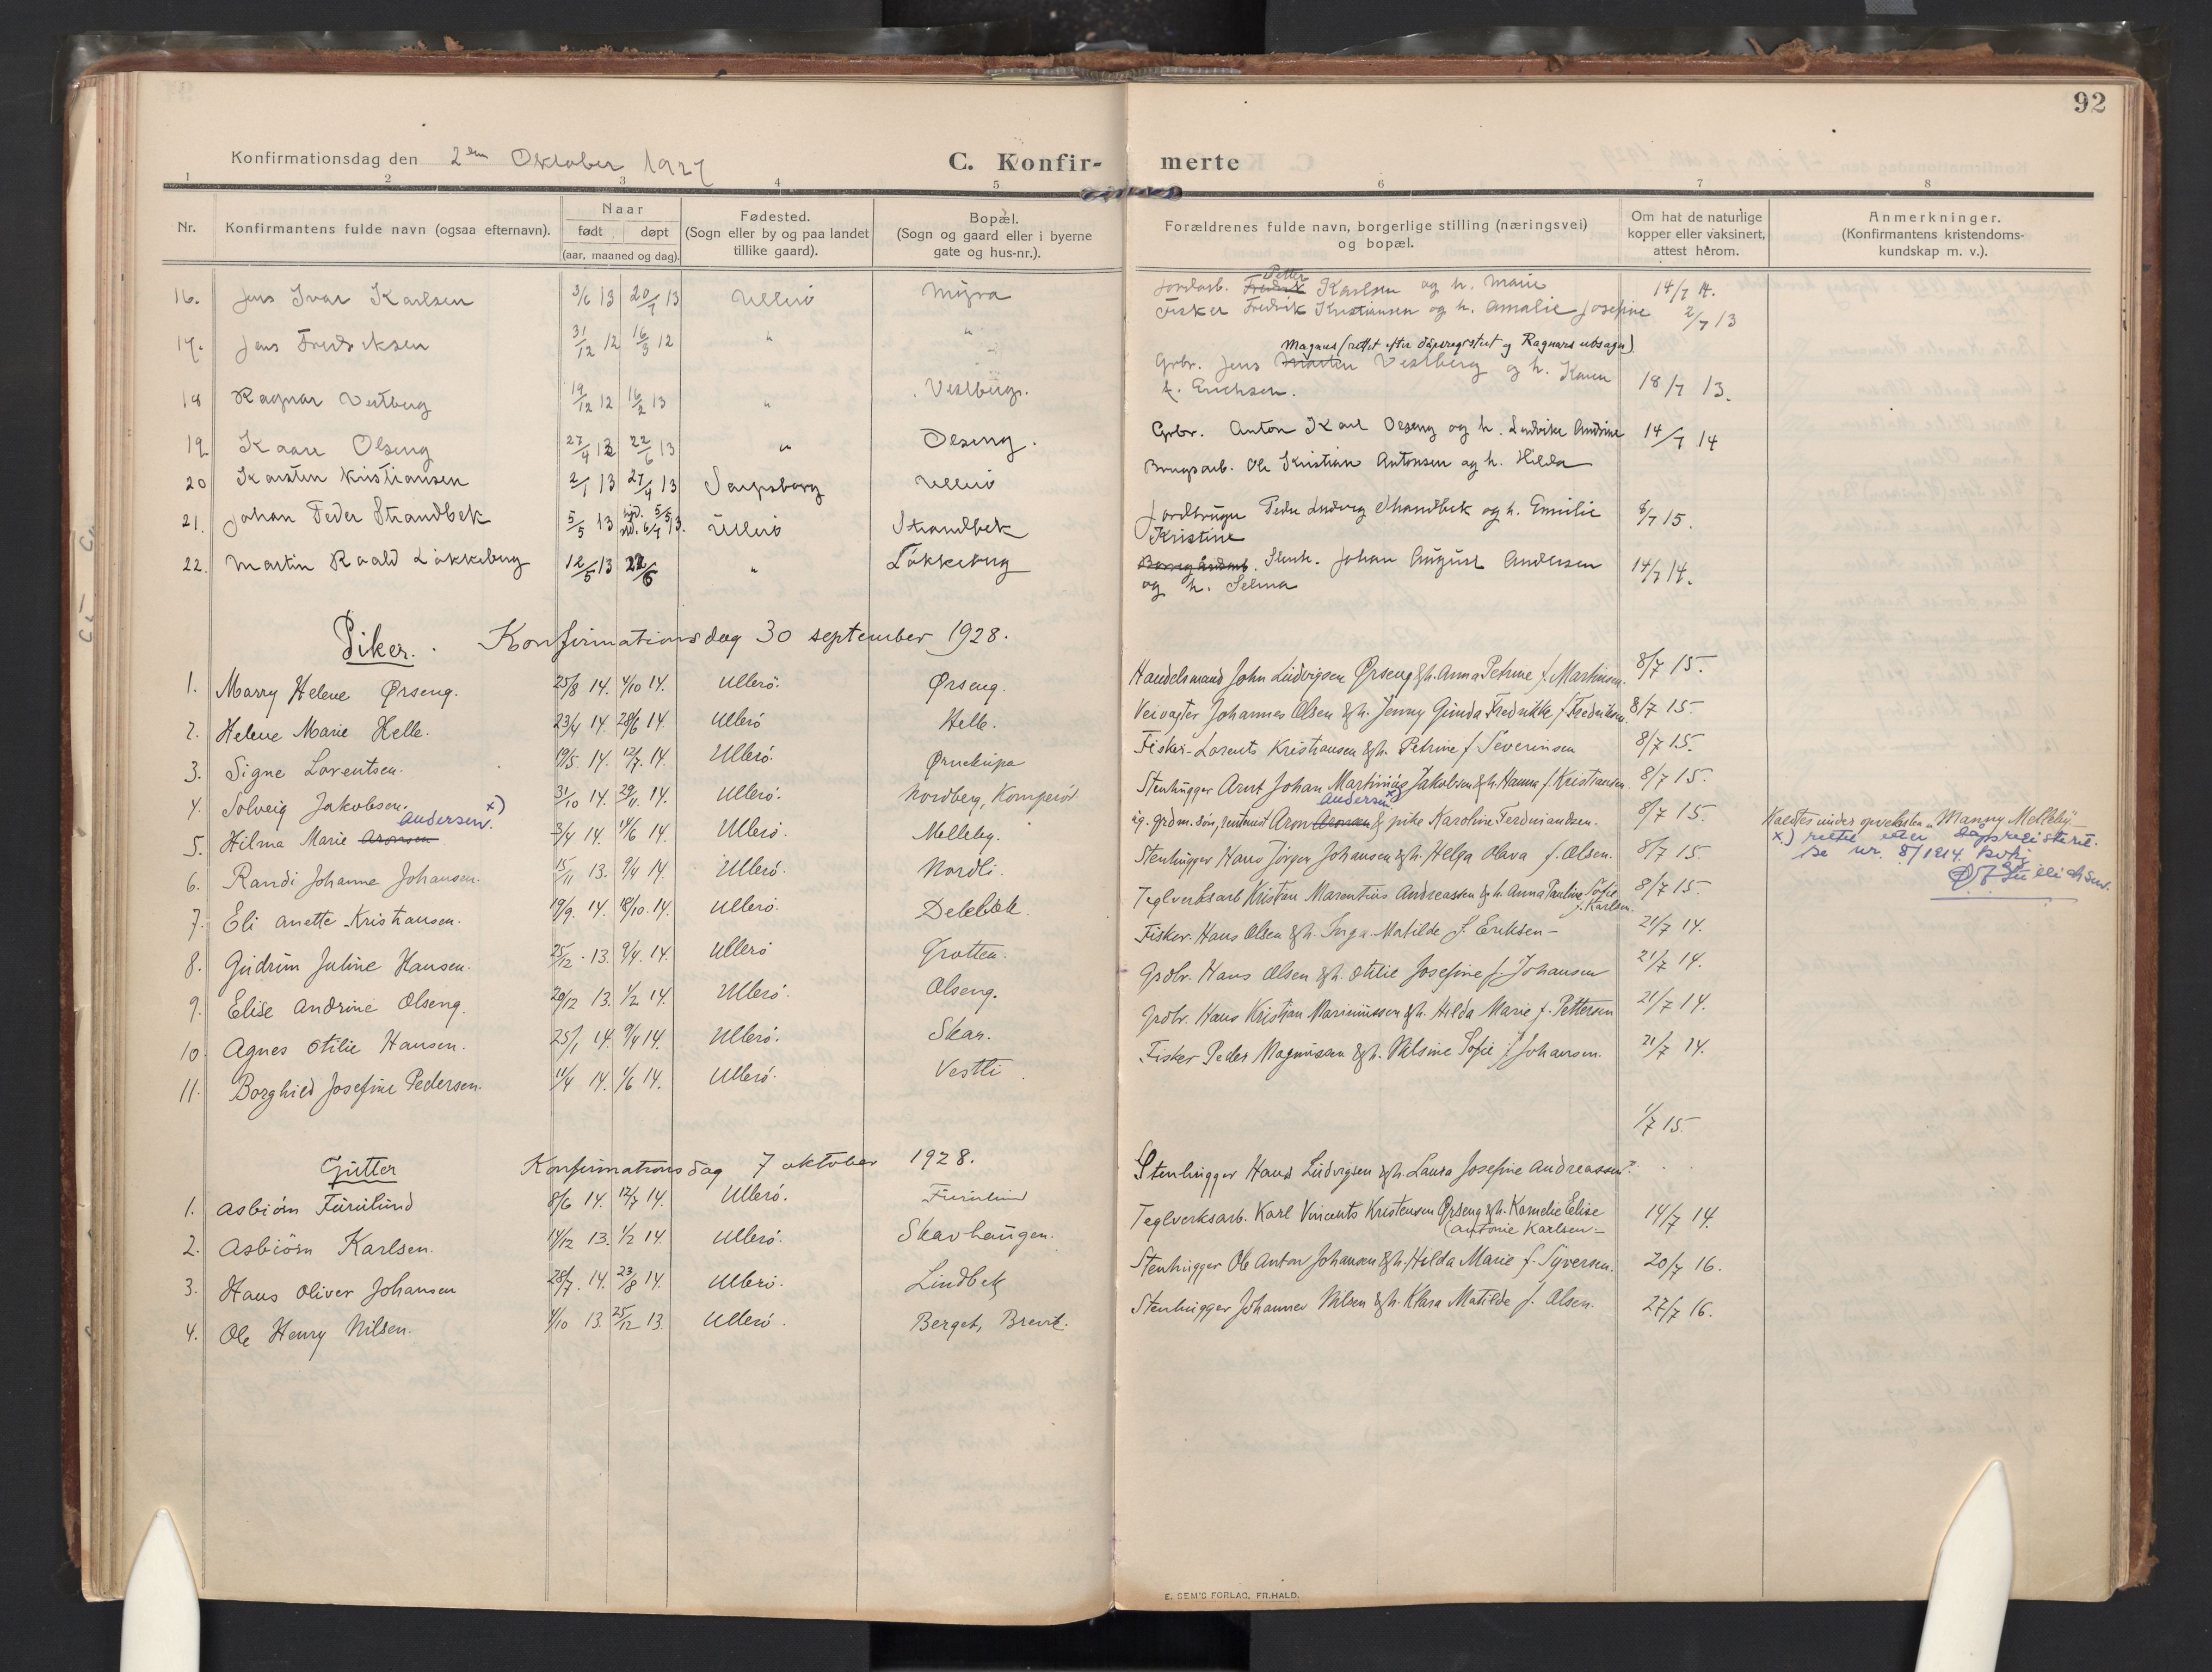 92
Konfirmationsdag den 2den Oktober 1927
C. Konfir- merte
1 2 3 4 5 6 7 8
Nr. Konfirmantens fulde navn (ogsaa efternavn). Naar født døpt (aar, maaned og dag). Fødested. (Sogn eller by og paa landet tillike gaard). Bopæl. (Sogn og gaard eller i byerne gate og hus-nr.). Forældrenes fulde navn, borgerlige stilling (næringsvei) og bopæl. Om hat de naturlige kopper eller vaksinert, attest herom. Anmerkninger. (Konfirmantens kristendoms- kundskap m. v.).
16. Jens Ivar Karlsen 3/6 13 20/7 13 Ullerö Myra Jordarb. Fredrik Petter Karlsen og h. Marie 14/7 14.
17. Jens Fredriksen 31/12 12 16/3 12 " " Fisker Fredrik Kristiansen og h. Amalie Josefine 2/7 13
Magnus (rettet efter dåpsregistret og Ragnars utsagn)
18 Ragnar Vestberg 19/12 12 16/2 13 " Vestberg. Grbr. Jens Martin Vestberg og h. Karen 18/7 13.
f. Erichsen.
19 Kaare Olseng 27/4 13 22/6 13 " Olseng. Grbr. Anton Karl Olseng og h. Ludvike Andrine 14/7 14
20 Karsten Kristiansen 2/1 13 27/4 13 Sarpsborg Ullerö Brugsarb. Ole Kristian Antonsen og h. Hilda
21. Johan Peder Strandbek 5/5 13 hjd. 5/5 13. Ullerö Strandbek Jordbruger Peder Ludvig Strandbek og h. Emilie 8/7 15.
Kristine
22. Martin Roald Løkkeberg 12/5 13 22/6 " Løkkeberg Stenh. Johan August Andersen 14/7 14.
og h. Selma
Piker. Konfirmationsdag 30 september 1928.
1. Marry Helene Ørseng. 25/8 14. 4/10 14. Ullerö. Ørseng. Handelsmand John Ludvigsen Ørseng & h. Anna Petrine f. Martinsen. 8/7 15.
2. Helene Marie Helle. 23/4 14. 28/6 14. Ullerö Helle. Veivogter Johannes Olsen & h. Jenny Gunda Fredrikke f. Fredriksen. 8/7 15.
3. Signe Lorentsen. 19/5. 14. 12/7. 14. Ullerö. Ørnekupa Fisker Lorents Kristiansen & h. Petrine f. Severinsen 8/7 15.
4. Solveig Jakobsen. 31/10 14. 29/11. 14. Ullerö. Nordberg, Komperöd Stenhugger Arnt Johan Martinius Jakobsen & h. Hanna f. Kristiansen 8/7 15.
5. Hilma Marie Aronsen Andersen. x) 3/4 14. 14/6 14. Ullerö. Melleby. ug. grdm. søn, rentenist Aron Aronsen Andersen x) & pike Karoline Ferdinandsen. 8/7 15. Kaldtes under opveksten „Manny Melleby
x) rettet etter dåpsregisteret.
se nr. 8/1914.
6. Randi Johanne Johansen. 15/11 13. 9/4 14. Ullerö. Nordli. Stenhugger Hans Jörgen Johansen & h. Helga Olava f. Olsen. 8/7 15.
7. Eli Anette Kristiansen. 19/9. 14. 18/10. 14. Ullerö. Delebæk. Teglverksarb Kristian Marentius Andreassen & h. Anna Pauline Sofie f. Karlsen. 8/7 15.
8. Gudrun Juline Hansen. 25/12. 13. 9/4. 14. Ullerö Grotten. Fisker. Hans Olsen & h. Inga Matilde f. Eriksen - 21/7 14.
9. Elise Andrine Olseng. 20/12 13. 1/2 14. Ullerö. Olseng. Grdbr. Hans Olsen & h. Otilie Josefine f. Johansen 21/7 14.
10. Agnes Otilie Hansen. 25/1 14. 9/4 14. Ullerö. Skar. Grdbr. Hans Kristian Mariniussen & h. Hilda Marie f. Pettersen 21/7 14.
11. Borghild Josefine Pedersen. 11/4 14. 1/6 14. Ullerö. Vestli. Fisker Peder Magnussen & h. Nilsine Sofie f. Johansen. 21/7 14.
1/7 15.
Gutter Konfirmationsdag 7 oktober 1928.
1. Asbiörn Furulund 8/6 14. 12/7 14. Ullerö. Furulund Stenhugger Hans Ludvigsen & h. Laura Josefine Andreassen.
2. Asbiörn Karlsen. 14/12 13. 1/2 14. Ullerö. Skavhaugen. Teglverksarb. Karl Vincents Kristensen Ørseng & h. Kornelie Elise 14/7 14.
(Antonie Karlsen -
3. Hans Oliver Johansen 28/7. 14. 23/8 14. Ullerö. Lindbek Stenhugger Ole Anton Johansen & h. Hilda Marie f. Syversen. 20/7 16.
4. Ole Henry Nilsen. 4/10 13. 25/12 13. Ullerö. Berget, Brevik. Stenhugger Johannes Nilsen & h. Klara Matilde f. Olsen. 27/7 16.
E. SEM'S FORLAG, FR.HALD.